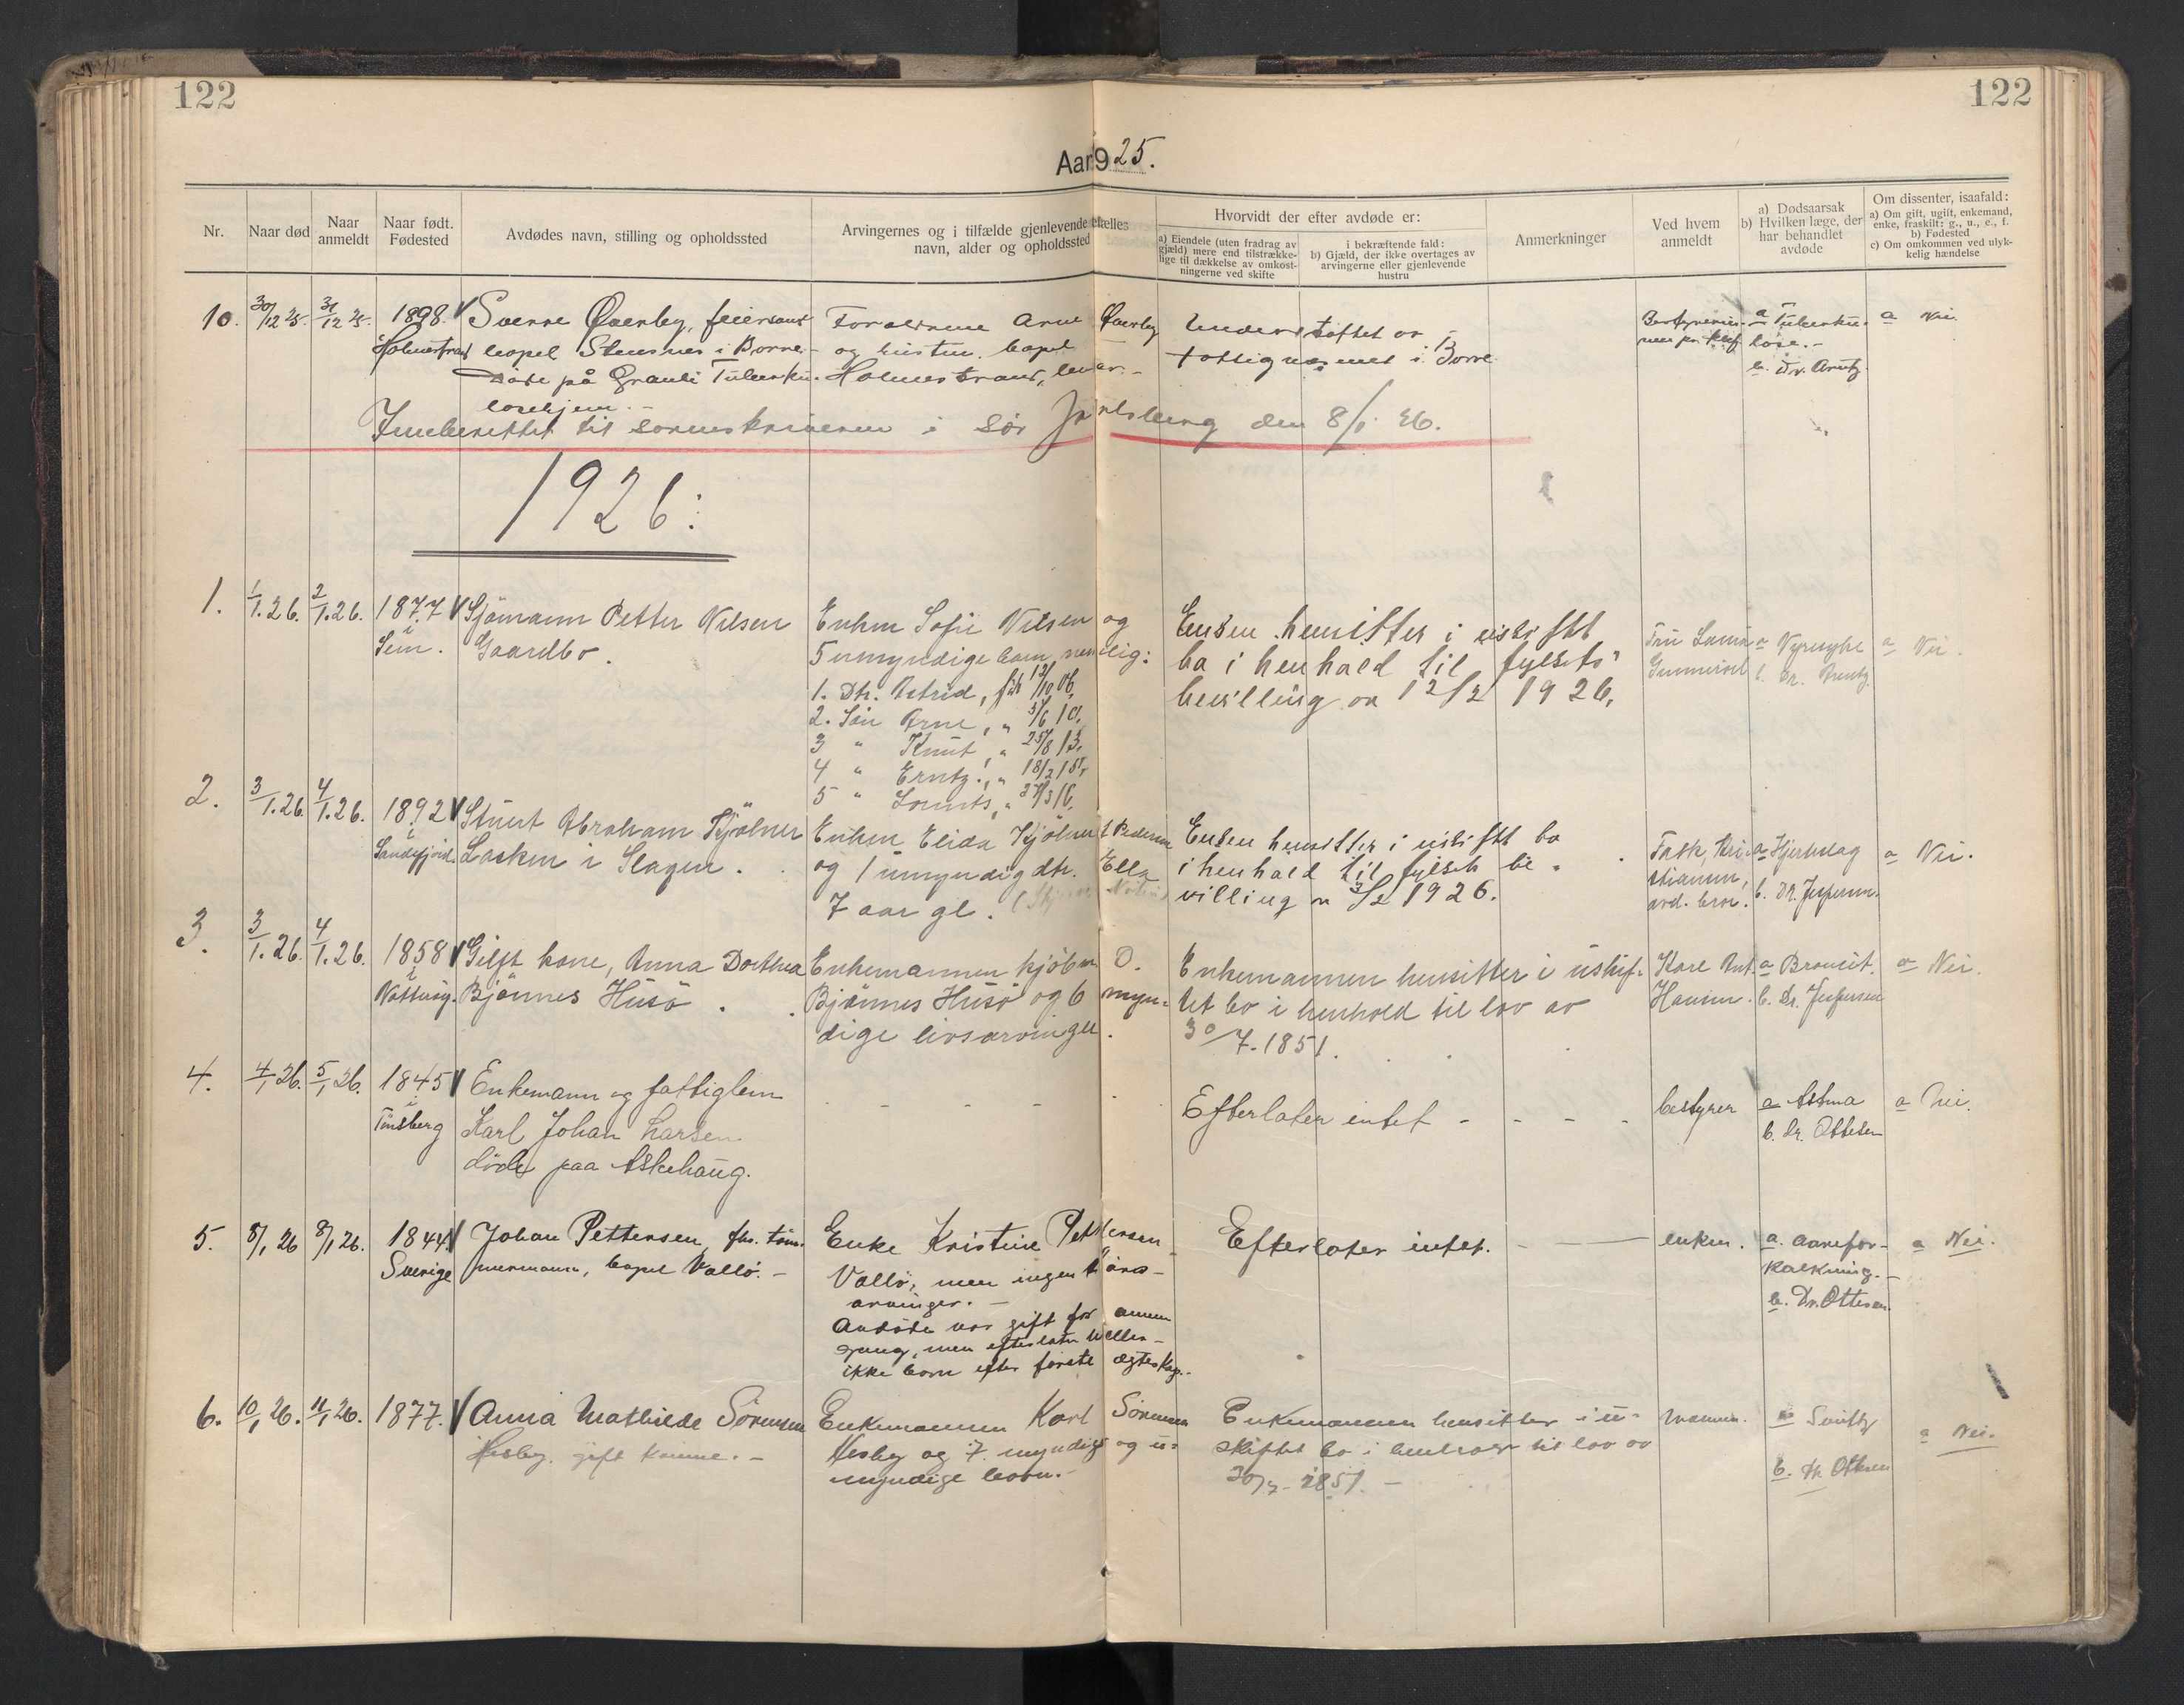 122
122
Aar 1925.
Nr.
Naar død
Naar anmeldt
Naar født. Fødested
Avdødes navn, stilling og opholdssted
Arvingernes og i tilfælde gjenlevende ektefælles navn, alder og opholdssted
Hvorvidt der efter avdøde er:
a) Eiendele (uten fradrag av gjæld) mere end tilstrækkelige til dækkelse av omkostningerne ved skifte
i bekræftende fald:
b) Gjæld, der ikke overtages av arvingerne eller gjenlevende hustru
Anmerkninger
Ved hvem anmeldt
a) Dødsaarsak
b) Hvilken læge, der har behandlet avdøde
Om dissenter, isaafald:
a) Om gift, ugift, enkemand, enke, fraskilt: g., u., e., f.
b) Fødested
c) Om omkommen ved ulykkelig hændelse
10. 30/12 25. 31/12 25. 1898. Sverre Øverby, feiersvent Forældrene Arne Øverby Understøttet av
Holmestrand bopel Stensnes i Borre. og hustru. bopel fattigvæsenet i Borre
Døde på Grauli Tuberku- Holmestrand, lever.
losehjem.
a Tuberku-
lose.
b. Dr. Arntz.
a Nei
Innberettet til sorenskriveren i Sør Jarlsberg den 8/1 26.
1926:
1. 1/1.26. 2/1.26. 1877 i Sem. Sjömann Petter Nilsen
Gaardbo.
Enken Sofie Nilsen og
5 umyndige barn, nemlig:
1. Dtr. Astrid, föt 12/10 06,
2. Sön Arne, " 5/6 10,
3 " Knut, " 25/8 13,
4 " " 18/2 15,
5 " " 27/3 16,
Enken hensitter i uskiftet
bo i henhold til fylkets-
bevilling av 12/2 1926,
Fru
a
b. Dr. Arntz.
a Nei.
2. 3/1.26. 4/1.26. 1892 i Sandefjord. Stuert Abraham Kjölner
Lasken i Slagen.
Enken Elida Kjölner f. Pedersen
og 1 umyndig dtr. Ella
7 aar gl.
Enken hensitter i uskiftet bo
i henhold til fylkets be-
villing av 3/2 1926.
Fask, Kri-
stiansen,
avd. bror.
a Hjerteslag
b. Dr. Jespersen.
a Nei.
3. 3/1.26. 4/1.26. 1858 i Nötteröy. Gift kone, Anna Dorthea
Bjönnes Husö.
Enkemannen kjöbm. O.
Bjönnes Husö og 6 myn-
dige livsarvinger.
Enkemannen hensitter i uskif-
tet bo i henhold til lov av
30/7. 1851.
Kare Ant.
Hansen.
a Bronkit.
b. Dr. Jespersen
a Nei.
4. 4/1 26. 5/1 26. 1845 i Tönsberg Enkemann og fattiglem
Karl Johan Larsen.
döde paa Askehaug.
Efterlater intet
bestyrer
a Astma
b. Dr. Ottesen
a Nei.
5. 8/1 26 8/1 26. 1844 Sverige Johan Pettersen, fhv. töm-
mermann, bopel Vallö.
Enke Kristine Pettersen
Vallö, men ingen livs-
arvinger.
Avdöde var gift for annen
gang, men efterlater heller
ikke barn efter förste ægteskap.
Efterlater intet.
enken.
a. aarefor-
kalkning.
b. Dr. Ottesen.
a Nei.
6. 10/1 26. 11/1 26. 1877. Anna Mathilde Sörensen
Hesby. gift kvinne.
Enkemannen Karl Sörensen
Hesby og 7 myndige og u-
myndige barn.
Enkemannen hensitter i u-
skiftet bo i henhold til lov av
30/7 1851.
mannen.
b. Dr. Ottesen
a Nei.